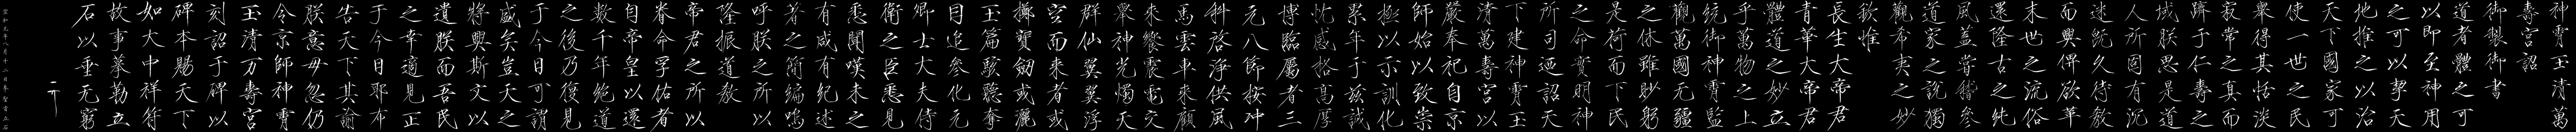 神霄玉清萬
壽宮詔
御製御書
道者體之可
以即至神用
之可以挈天
地推之以治
天下國家可
使一世之民
舉得其恬淡
寂常之真而
躋于仁壽之
域朕思是道
人所固有沉
迷既久待教
而興俾欲革
末世之流俗
還隆古之純
風蓋嘗稽參
道家之說獨
觀希夷之妙
欽惟
長生大帝君
青華大帝君
體道之妙立
乎萬物之上
統御神霄監
觀萬國无疆
之休雖眇躬
是荷而下民
之命實明神
所司迺詔天
下建神霄玉
清萬壽宮以
嚴奉祀自京
師始以致崇
極以示訓化
累年于茲誠
忱感格高厚
博臨屬者三
元八節按沖
科啓淨供風
馬雲車來顧
來饗震電交
舉神光燭天
群仙翼翼浮
空而來者或
擲寶劍或灑
玉篇駭聽奪
目追參化元
卿士大夫侍
衛之臣悉見
悉聞嘆未之
有咸有紀述
著之簡編嗚
呼朕之所以
隆振道教
帝君之所以
眷命孚佑者
自帝皇以還
數千年絕道
之後乃復見
于今日可謂
盛矣豈天之
將興斯文以
遺朕而吾民
之幸適見正
于今日耶布
告天下其諭
朕意毋忽仍
令京師神霄
玉清万壽宮
刻詔于碑以
碑本賜天下
如大中祥符
故事摹勒立
石以垂无窮
宣和元年八月十二日奉聖旨立石